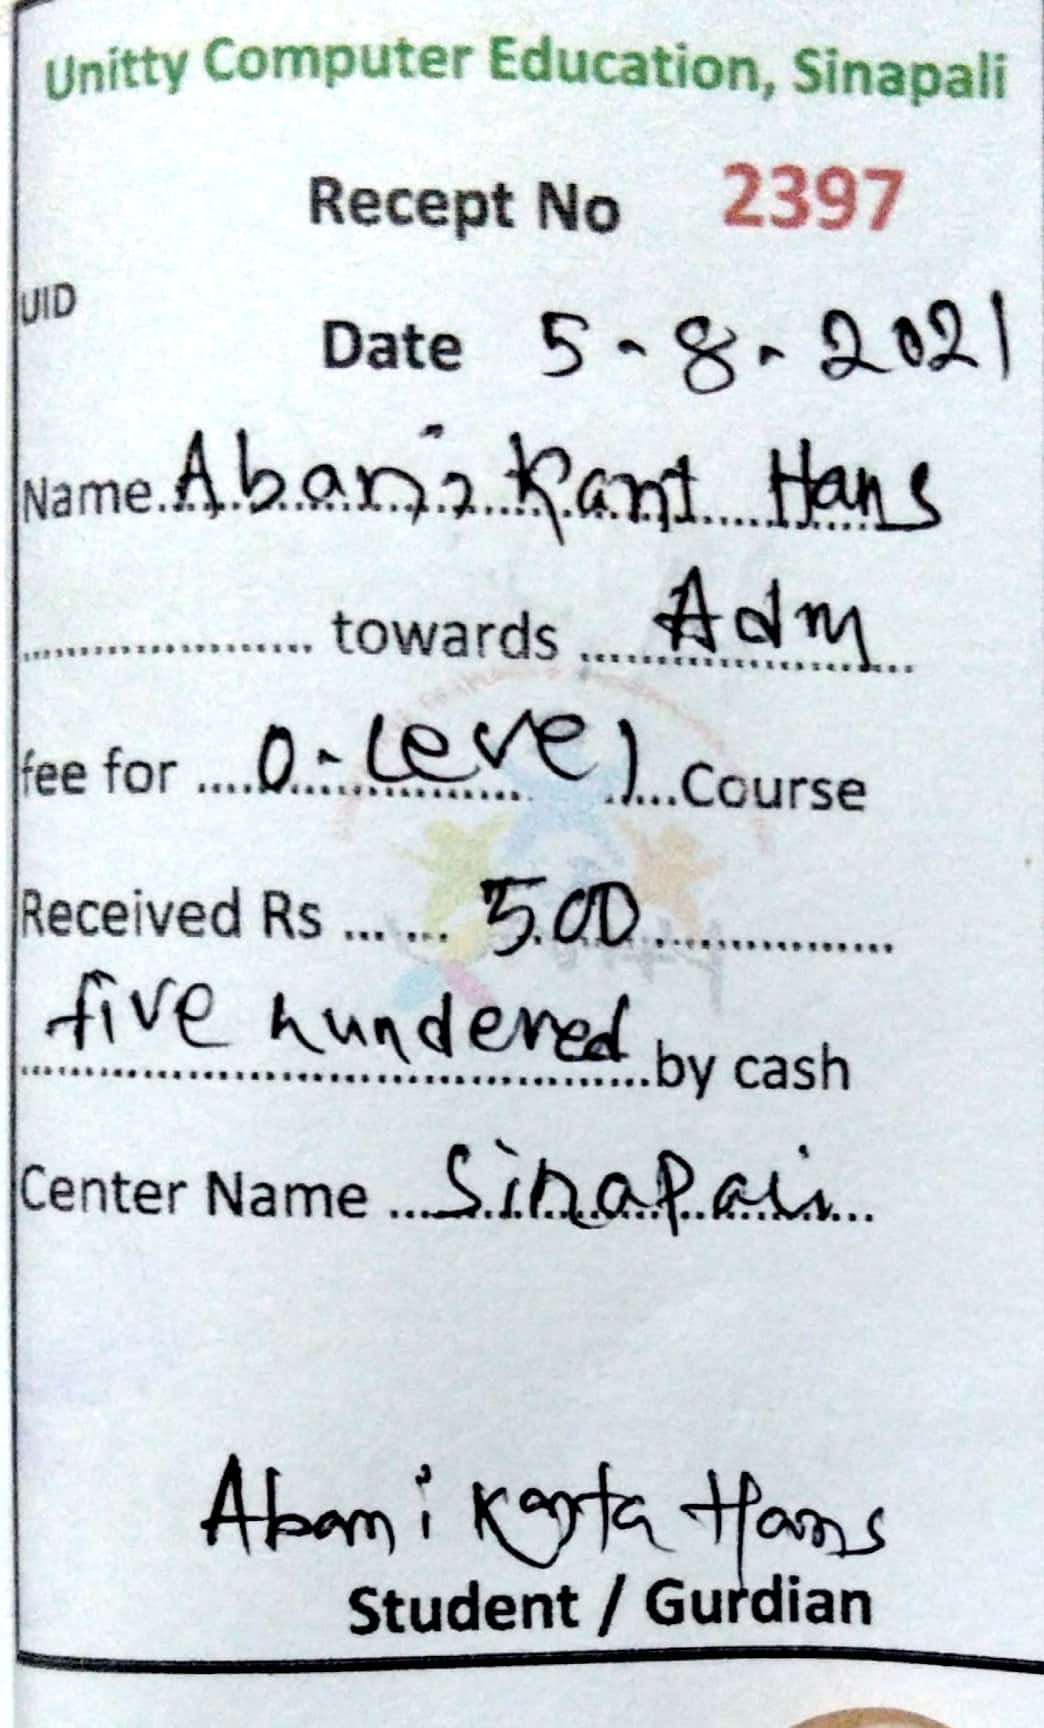 Unitty Computer Education, Sinapali
Recept No 2397
UID
Date 5-8-2021
Name. Abani Kant Hans
.................... towards .... Adm
fee for .... O-Level ....Course
Received Rs ...... 500 ................
five hundered ..by cash
Center Name ... Sinapali ...
Abani Kanta Hans
Student / Gurdian